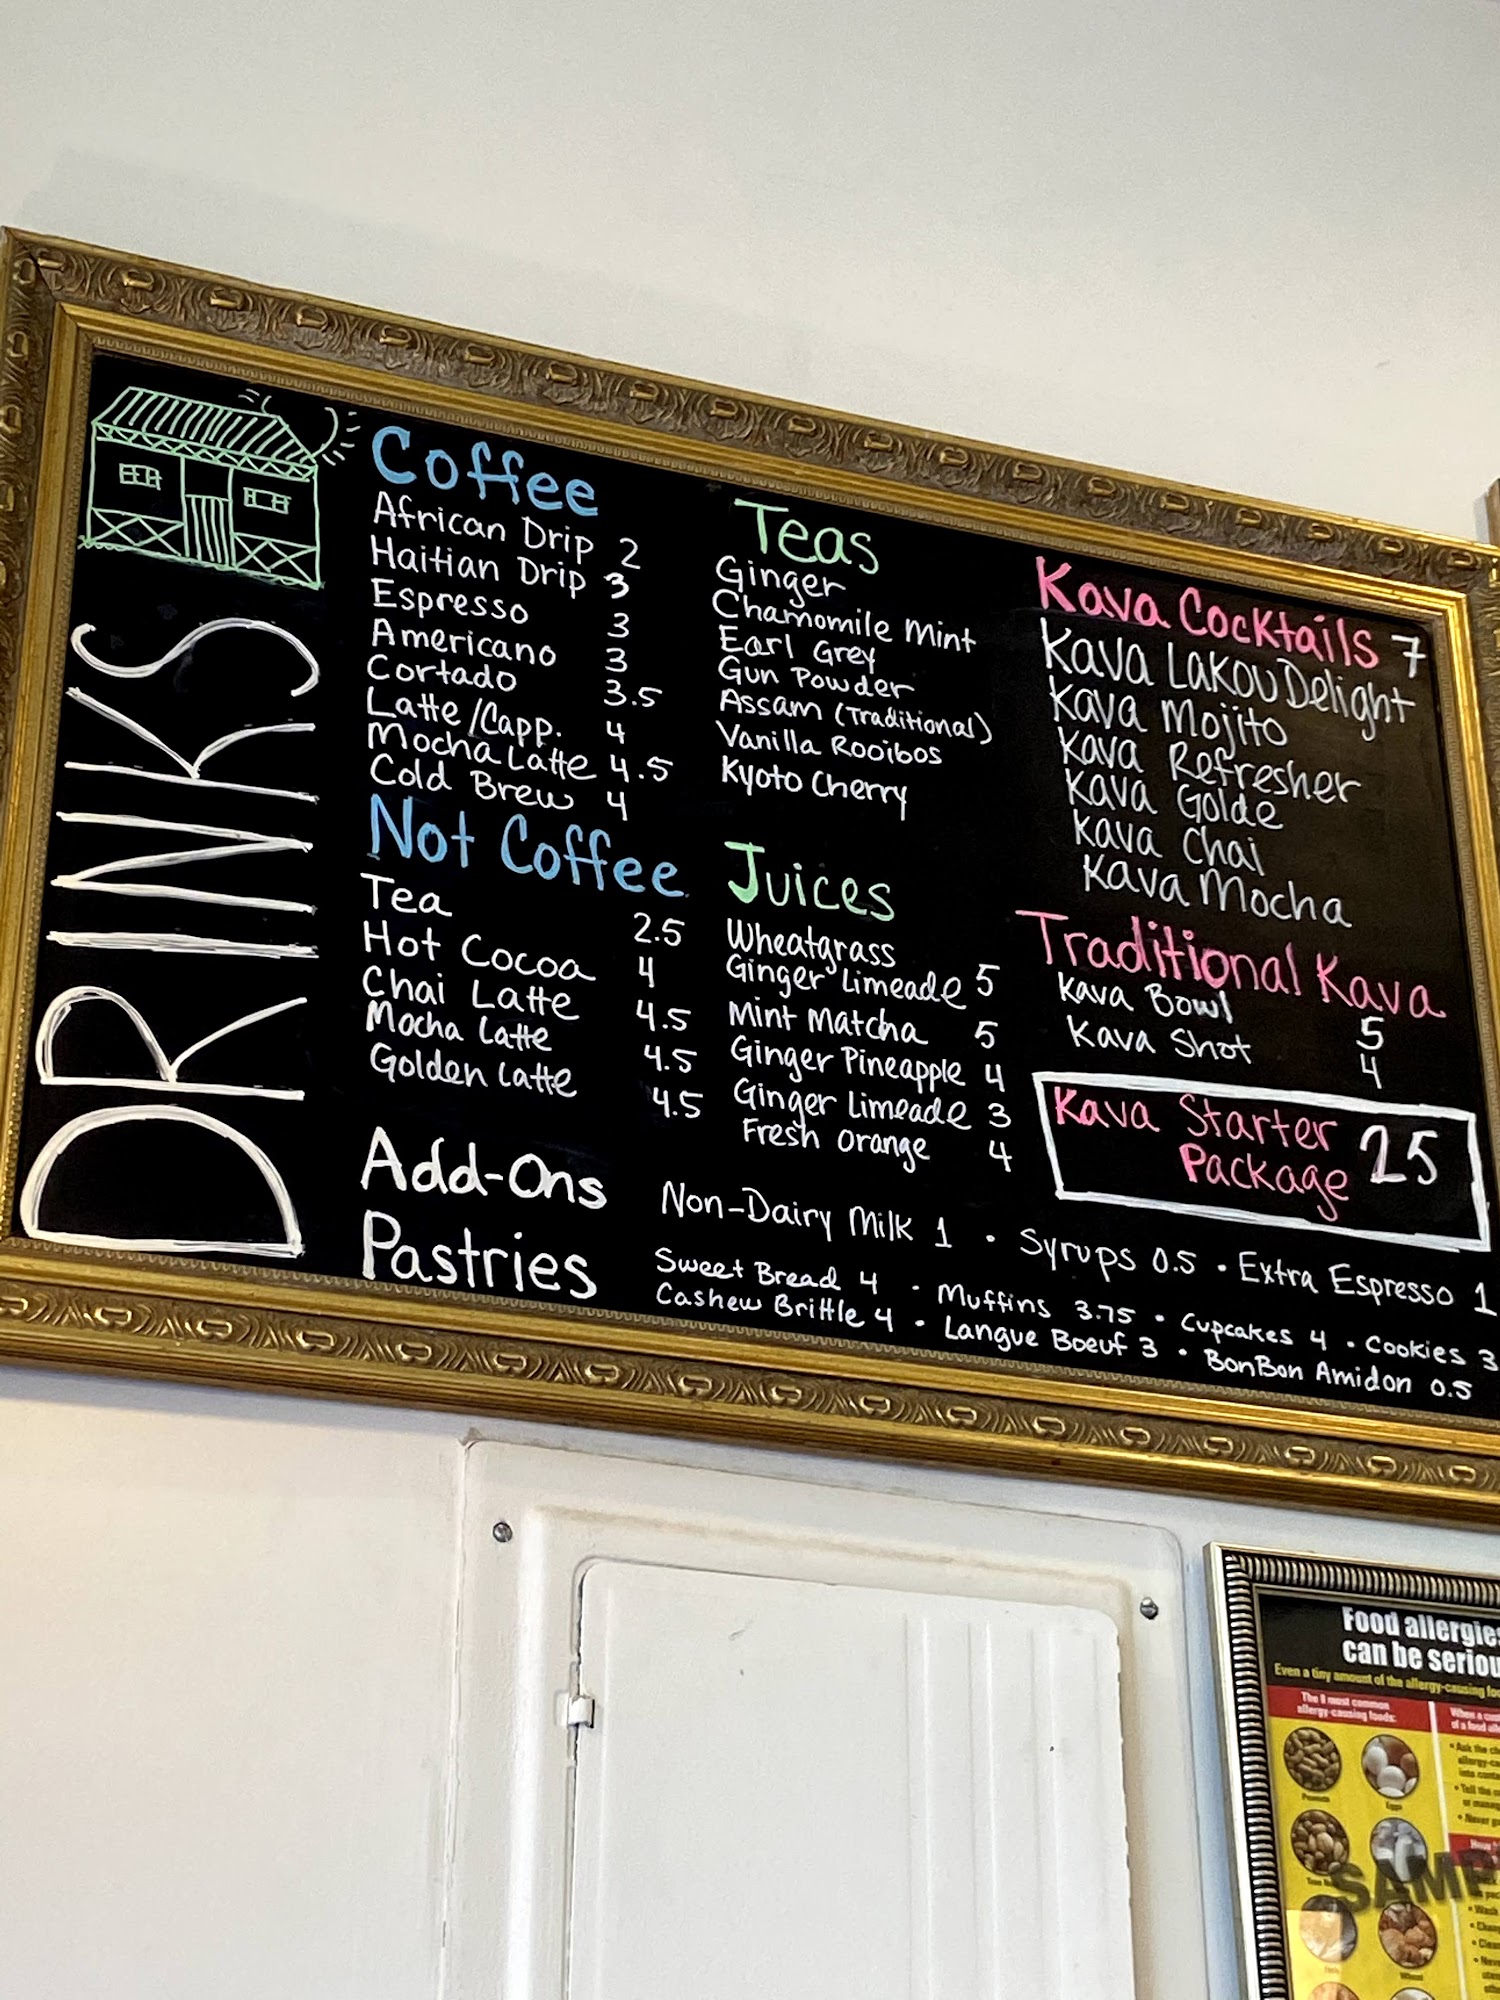 DRINKS
Coffee
African Drip 2
Haitian Drip 3
Espresso 3
Americano 3
Cortado 3.5
Latte/Capp. 4
Mocha Latte 4.5
Cold Brew 4
Not Coffee
Tea 2.5
Hot Cocoa 4
Chai Latte 4.5
Mocha Latte 4.5
Golden Latte 4.5
Teas
Ginger
Chamomile Mint
Earl Grey
Gun Powder
Assam (Traditional)
Vanilla Rooibos
Kyoto Cherry
Juices
Wheatgrass
Ginger Limeade 5
Mint Matcha 5
Ginger Pineapple 4
Ginger Limeade 3
Fresh Orange 4
Kava Cocktails 7
Kava LAKOU Delight
Kava Mojito
Kava Refresher
Kava Golde
Kava Chai
Kava Mocha
Traditional Kava
Kava Bowl 5
Kava Shot 4
Kava Starter
Package 25
Add-Ons
Non-Dairy Milk 1 • Syrups 0.5 • Extra Espresso 1
Pastries
Sweet Bread 4 • Muffins 3.75 • Cupcakes 4 • Cookies 3
Cashew Brittle 4 • Langue Boeuf 3 • BonBon Amidon 0.5
Food allergies
can be seriou
Even a tiny amount of the allergy-causing foo
The 8 most common
allergy-causing foods:
Peanuts
Eggs
Wheat
SAMP